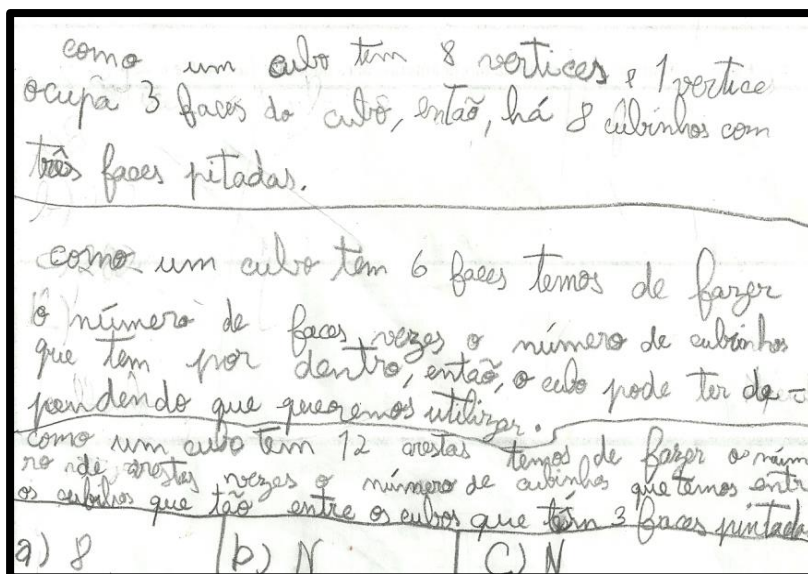 como um cubo tem 8 vertices e 1 vertice
ocupa 3 faces do cubo, então, há 8 cubinhos com
três faces pitadas.
como um cubo tem 6 faces temos de fazer
o número de faces vezes o número de cubinhos
que tem por dentro, então, o cubo pode ter de-
pendendo que queremos utilizar.
como um cubo tem 12 arestas temos de fazer o núm
ro de arestas vezes o número de cubinhos que temos entr
os cubilhos que tão entre os cubos que têm 3 faces pintada
a) 8 b) N C) N